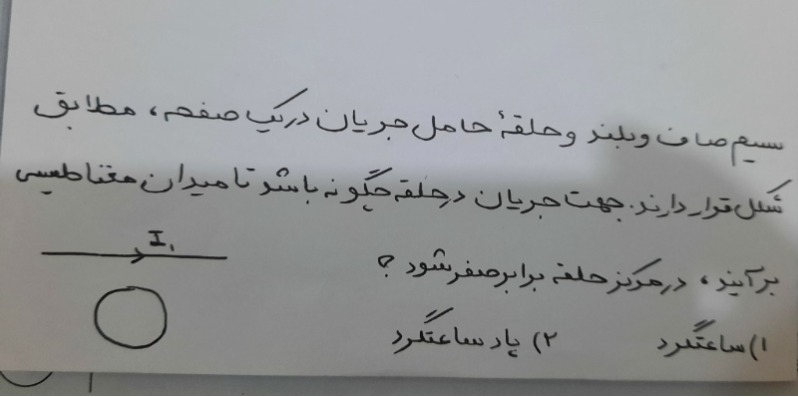 سیم صاف وبلند و حلقهٔ حامل جریان دریک صفحه، مطابق
شکل قرار دارند. جهت جریان درحلقه چگونه باشد تا میدان مغناطیسی
برآیند، درمرکز حلقه برابر صفر شود؟
I₁
۱) ساعتگرد ۲) پادساعتگرد